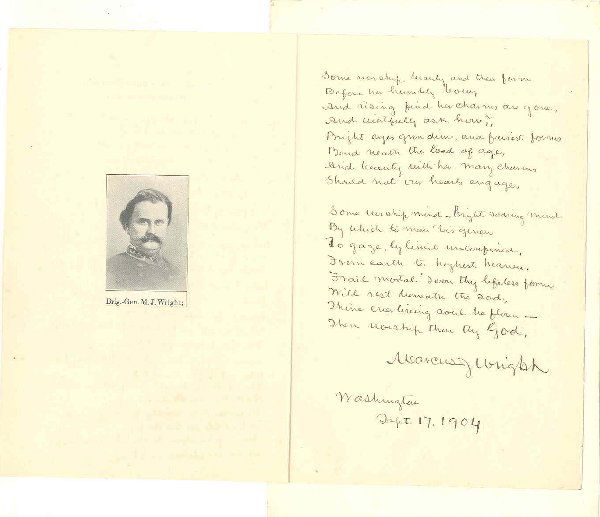 Brig.-Gen. M. J. Wright;
Some worship beauty and thus form
Before her humbly bow,
And rising find her charms are gone,
And ask how?
Bright eyes grow dim, and fairest forms
Bend neath the load of age,
And beauty with her many charms
Should not our hearts engage.
Some worship mind, bright mind
By which to man tis given
To gaze, by limit unconfined,
From earth to highest heaven.
Frail mortal! Soon thy lifeless form
Will rest beneath the sod,
Thine soul be flown —
Then worship thou thy God.
Marcus J Wright
Washington
Sept. 17, 1904